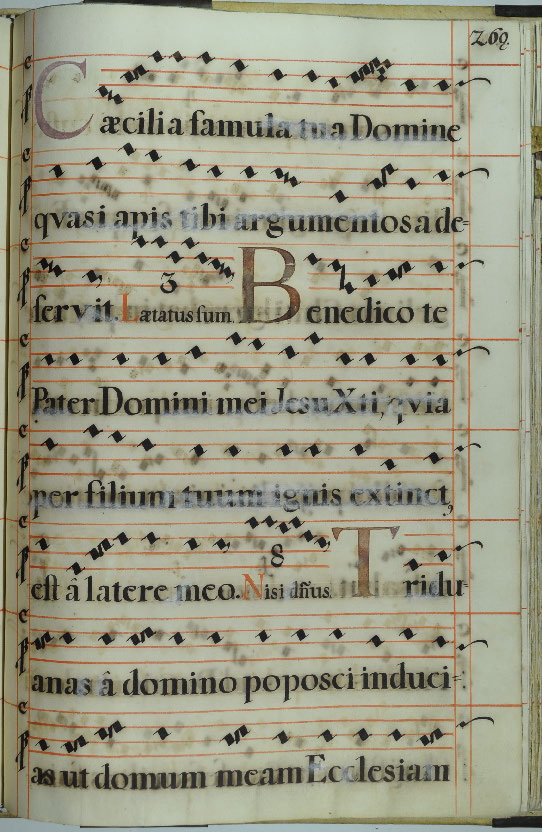 269.
Cæcilia famula tua Domine
qvasi apis tibi argumentosa de=
servit. Lætatus sum. 3 Benedico te
Pater Domini mei Jesu Xti, qvia
per filium tuum ignis extinct,
est â latere meo. Nisi dñus 8 Tridu-
anas â domino poposci induci=
as ut domum meam Ecclesiam